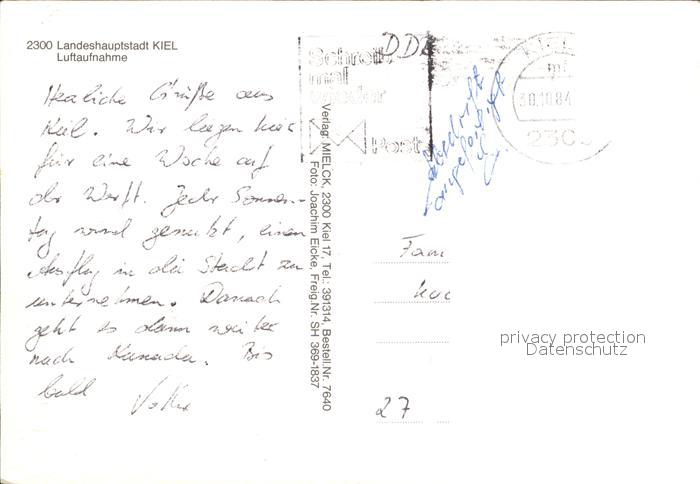 2300 Landeshauptstadt KIEL
Luftaufnahme
Herzliche Grüße aus
Kiel. Wir liegen hier
für eine Woche auf
der Werft. Jeder Sonnen-
tag wird genutzt, einen
Ausflug in die Stadt zu
unternehmen. Danach
geht es dann weiter
nach Kanada. Bis
bald Volker
Verlag: MIELCK, 2300 Kiel 17, Tel.: 391314, Bestell.Nr. 7640
Foto: Joachim Eicke, Freig.Nr. SH 369-1837
Schreib
mal
wieder
Post
DDR
KIEL
30.10.84
230
Fam
27
privacy protection
Datenschutz